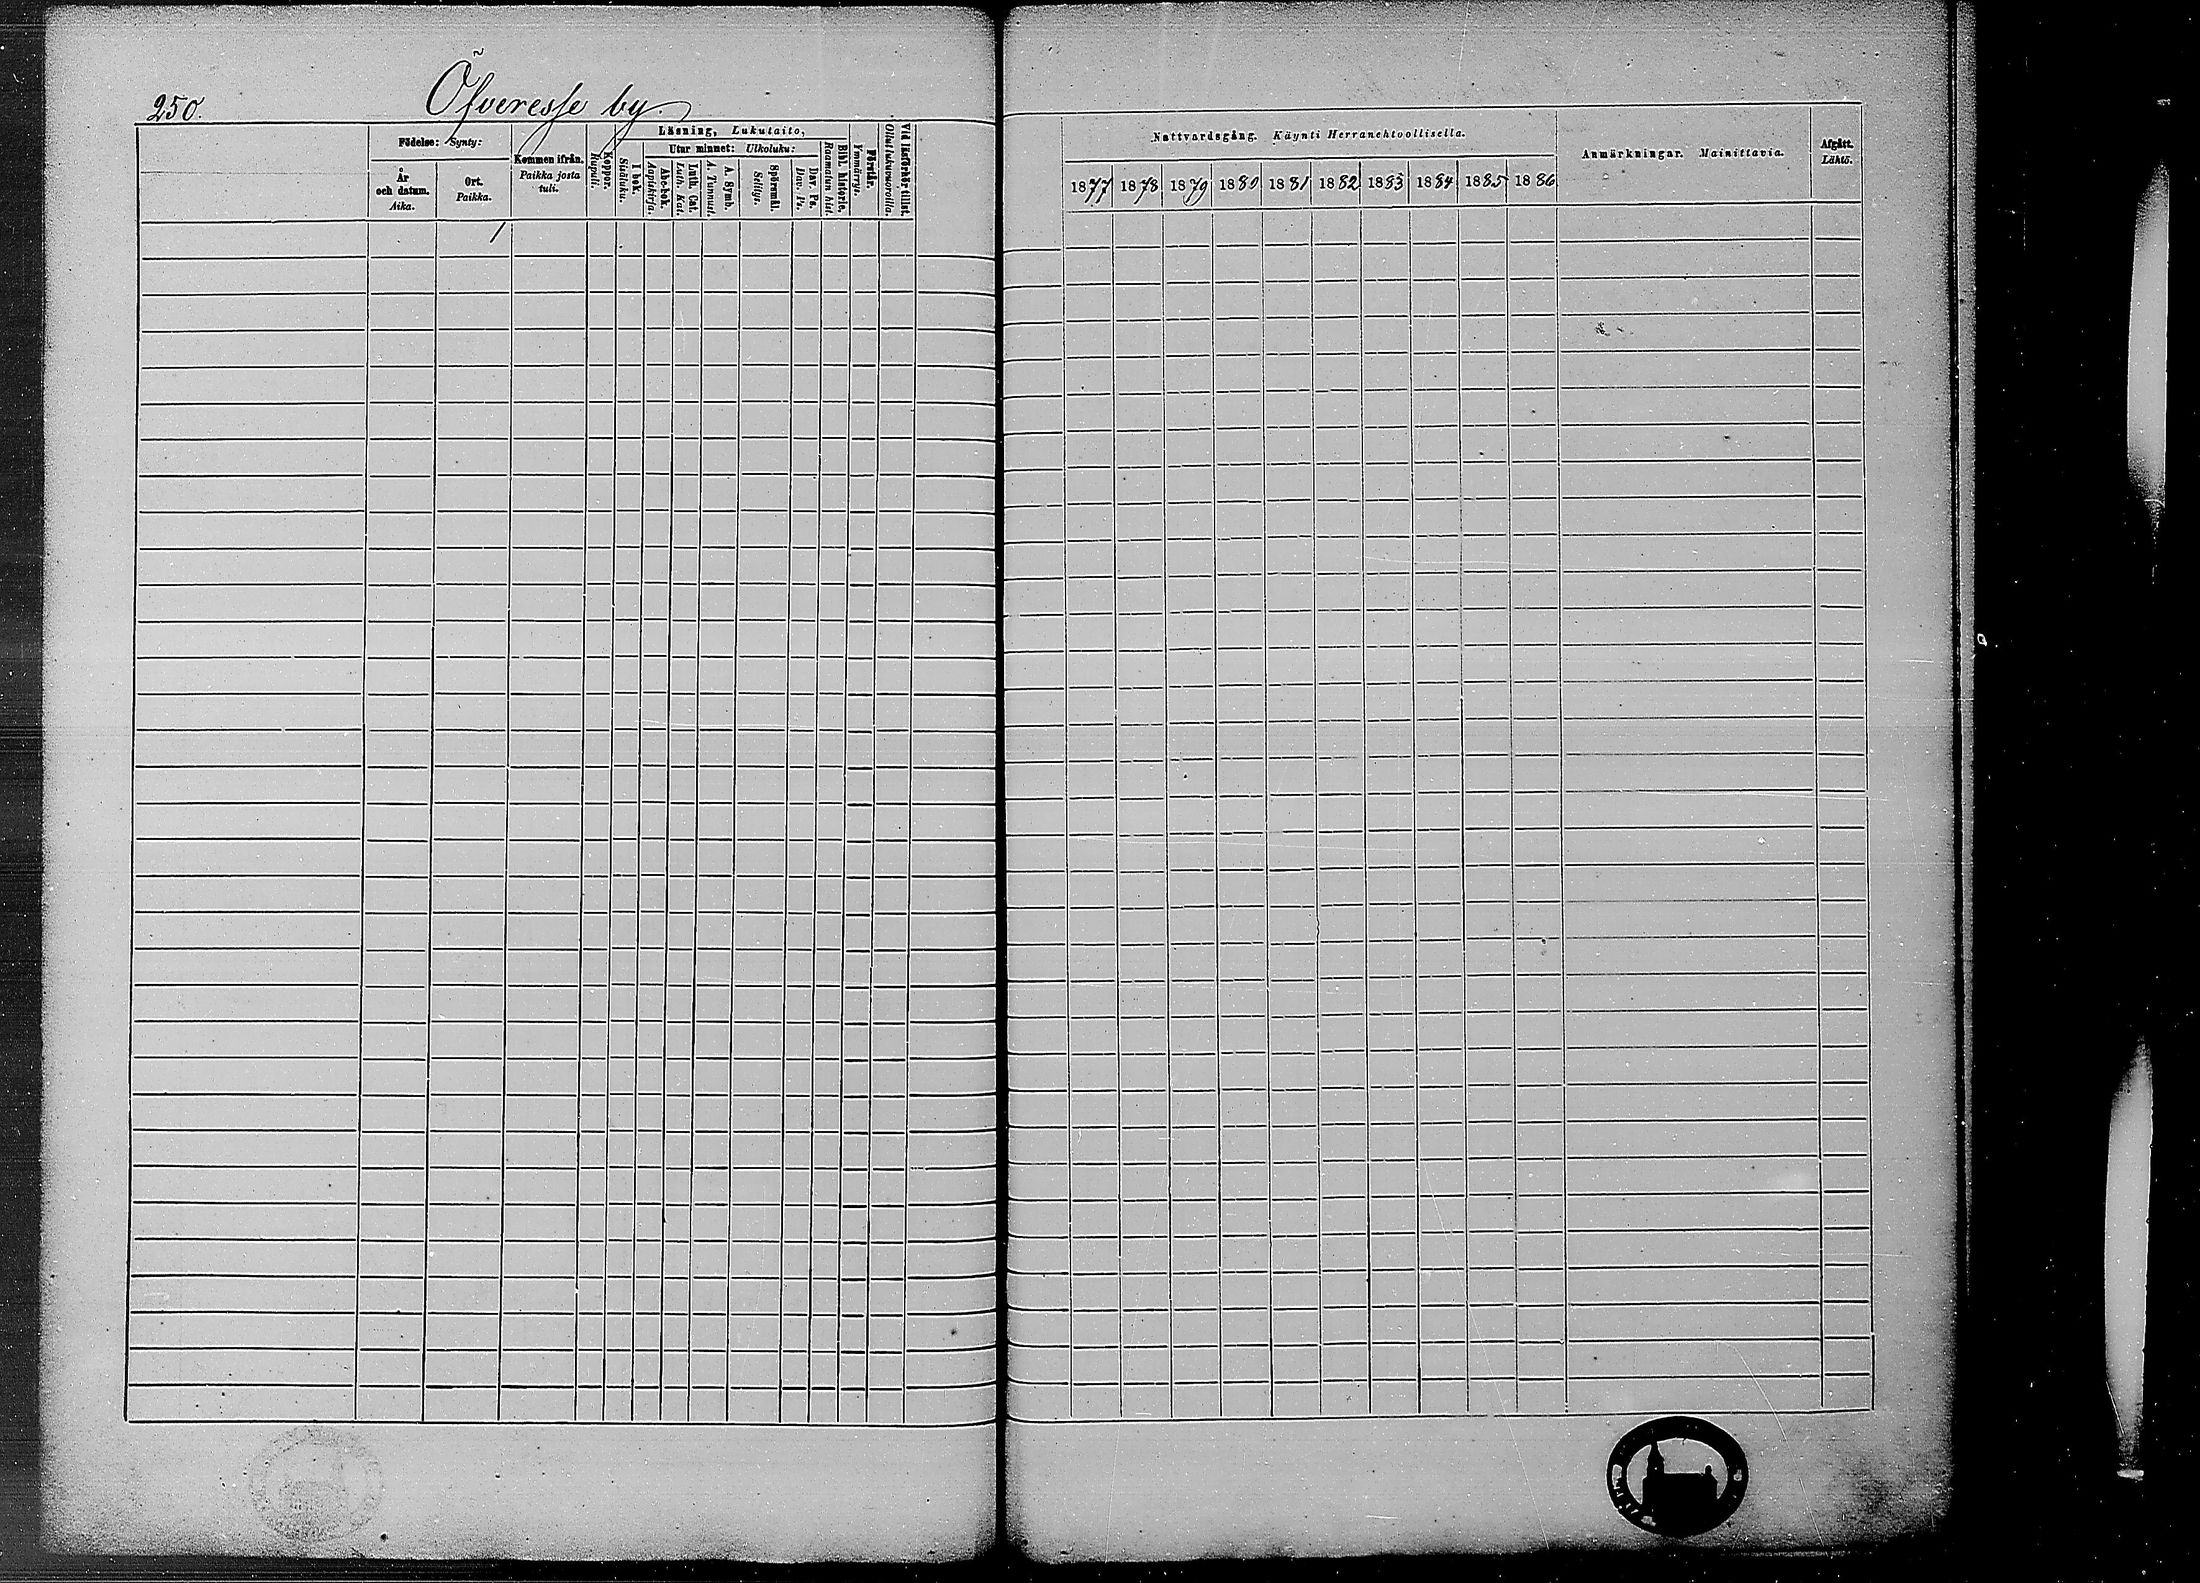 250.
Öfveresse by.
Födelse: Synty:
År och datum. Aika.
Ort. Paikka.
Kommen ifrån. Paikka josta tuli.
Koppor. Rupuli.
Läsning, Lukutaito,
I bok. Sisäluku.
Utur minnet: Ulkoluku:
Abc-bok. Aapiskirja.
Luth. Cat. Luth. Kat.
A. Symb. A. Tunnust.
Spörsmål. Selitys.
Dav. Ps. Dav. Ps.
Bibl. historie. Raamatun hist.
Förstår. Ymmärrys.
Vid läsförhör tillst. Ollut lukuvuoroilla.
Nattvardsgång. Käynti Herranehtoollisella.
1877 1878 1879 1880 1881 1882 1883 1884 1885 1886
Anmärkningar. Mainittavia.
Afgått. Lähtö.